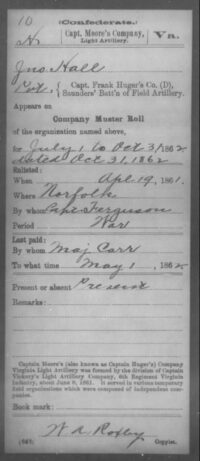 10
(Confederate.)
H
Capt. Moore's Company,
Light Artillery.
Va.
Jno. Hall
Pvt., { Capt. Frank Huger's Co. (D),
Saunders' Batt'n of Field Artillery.
Appears on
Company Muster Roll
of the organization named above,
for July 1 to Oct 31, 1862
dated Oct 31, 1862
Enlisted:
When Apl 19, 1861.
Where Norfolk
By whom Capt Ferguson
Period War
Last paid:
By whom Maj Carr
To what time May 1, 1862
Present or absent Present
Remarks:
Captain Moore's (also known as Captain Huger's) Company
Virginia Light Artillery was formed by the division of Captain
Vickery's Light Artillery Company, 6th Regiment Virginia
Infantry, about June 8, 1861. It served in various temporary
field organizations which were composed of independent com-
panies.
Book mark:
(642)
Copyist.